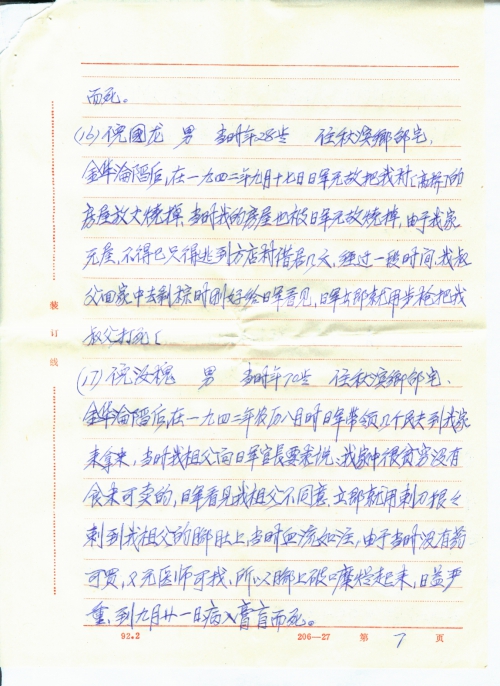 而死。
(16)倪國龙 男 当时年28岁 住秋滨鄉部宅、
金华淪陷后,在一九四二年九月十七日日军无故把我村(高桥)的
房屋放火烧掉,当时我的房屋也被日军无故烧掉,由于我家
无屋,不得已只得逃到方店村借居几天,经过一段时间,我叔
父回家中去剥棕时刚好给日军看见,日军立即就用步枪把我
叔父打死(
(17)倪汝槐 男 当时年70岁 住秋滨鄉部宅、
金华淪陷后,在一九四二年农历八月时日军带领几个民夫到我家
来拿米,当时我祖父向日军官長要求说:我家中很貧穷没有
食米可卖的,日军看见我祖父不同意,立即就用刺刀狠々
刺到我祖父的脚肚上,当时血流如注,由于当时没有药
可買,又无医师可找,所以脚上破口糜烂起来,日益严
重,到九月廿一日病入膏肓而死。
装订线
92.2 206—27 第 7 页